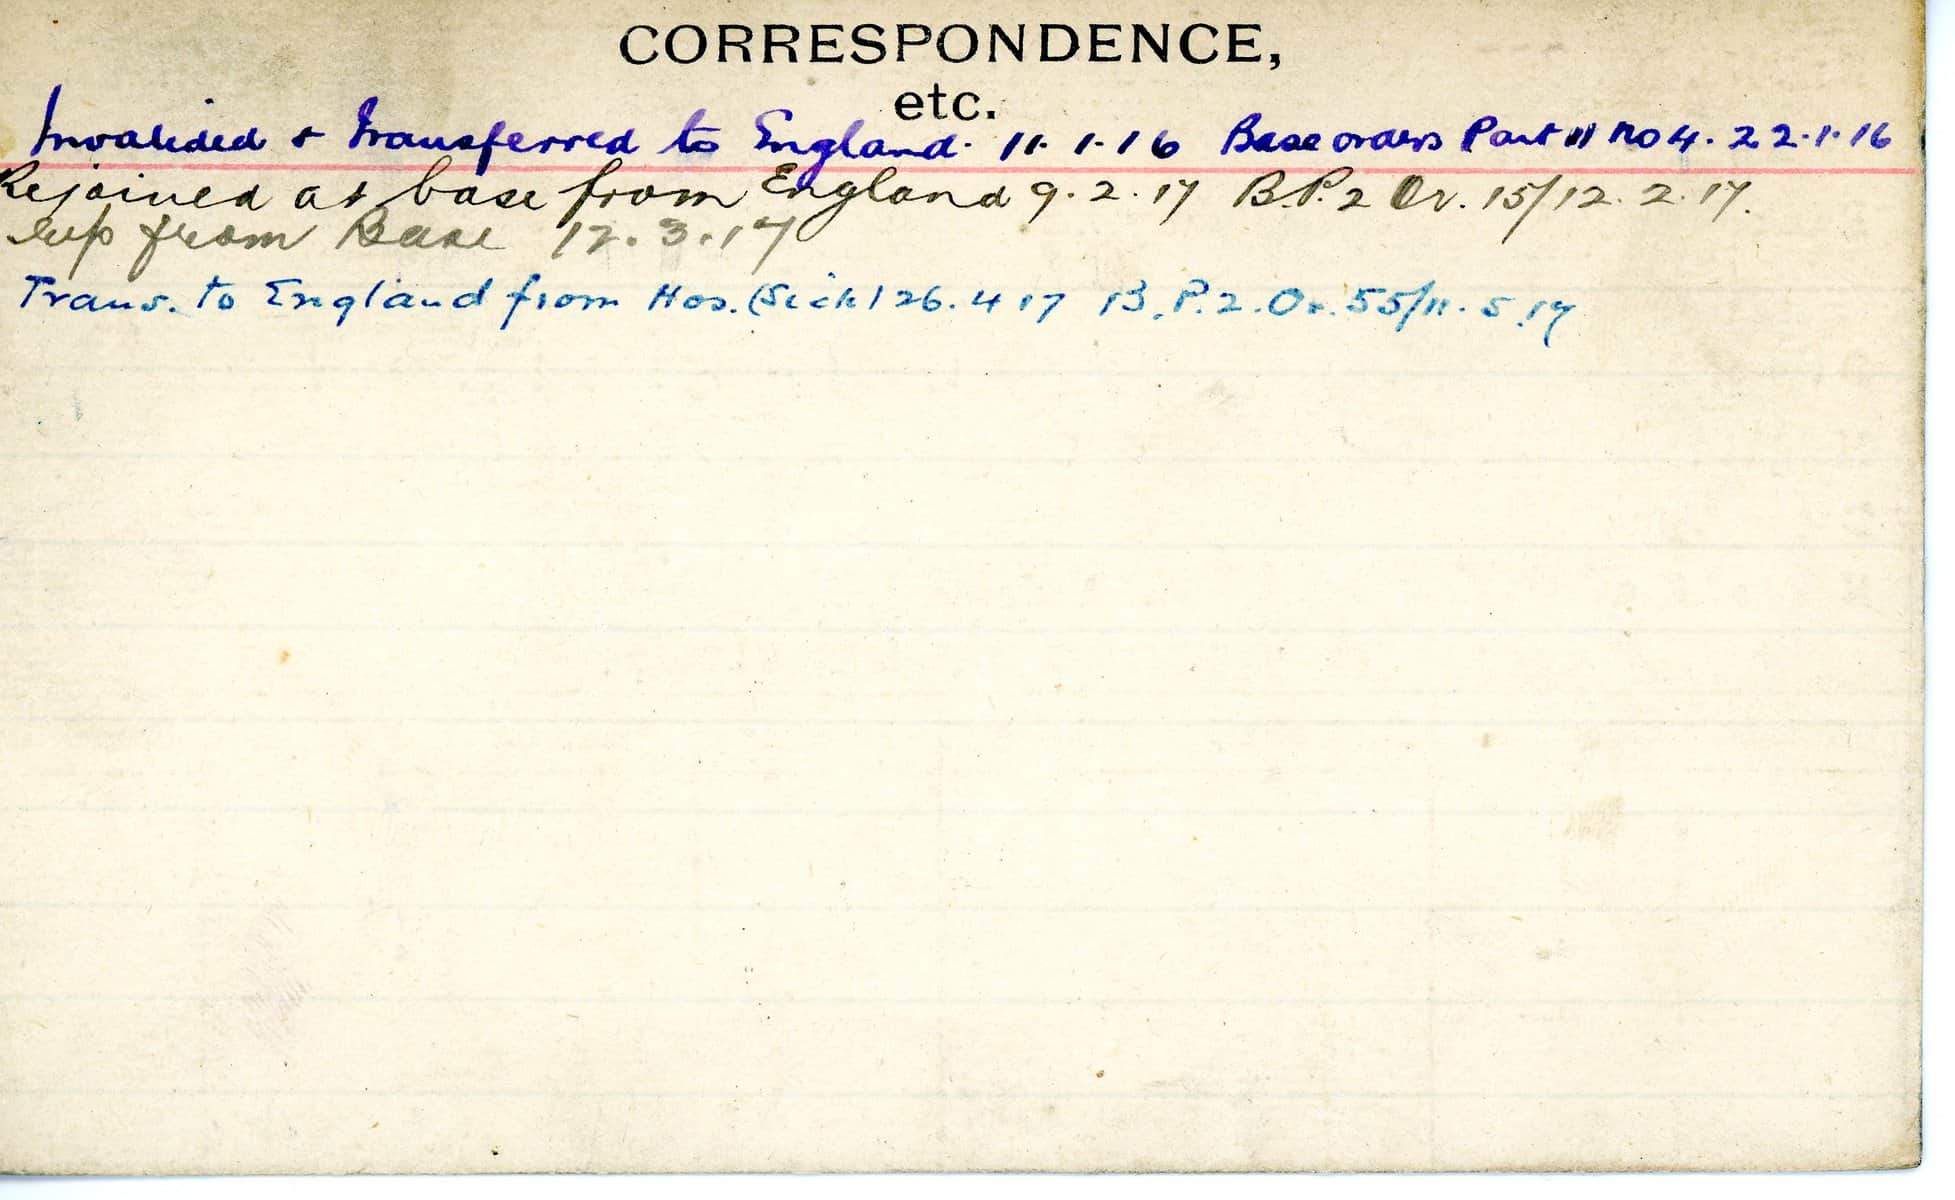 CORRESPONDENCE,
etc.
Invalided & Transferred to England. 11.1.16 Base orders Part II No 4. 22.1.16
Rejoined at base from England 9.2.17 B.P.2 Or. 15/12.2.17.
from Base 12.3.17
Trans. to England from Hos. (Sick) 26.4.17 B.P.2.Or.55/11.5.17